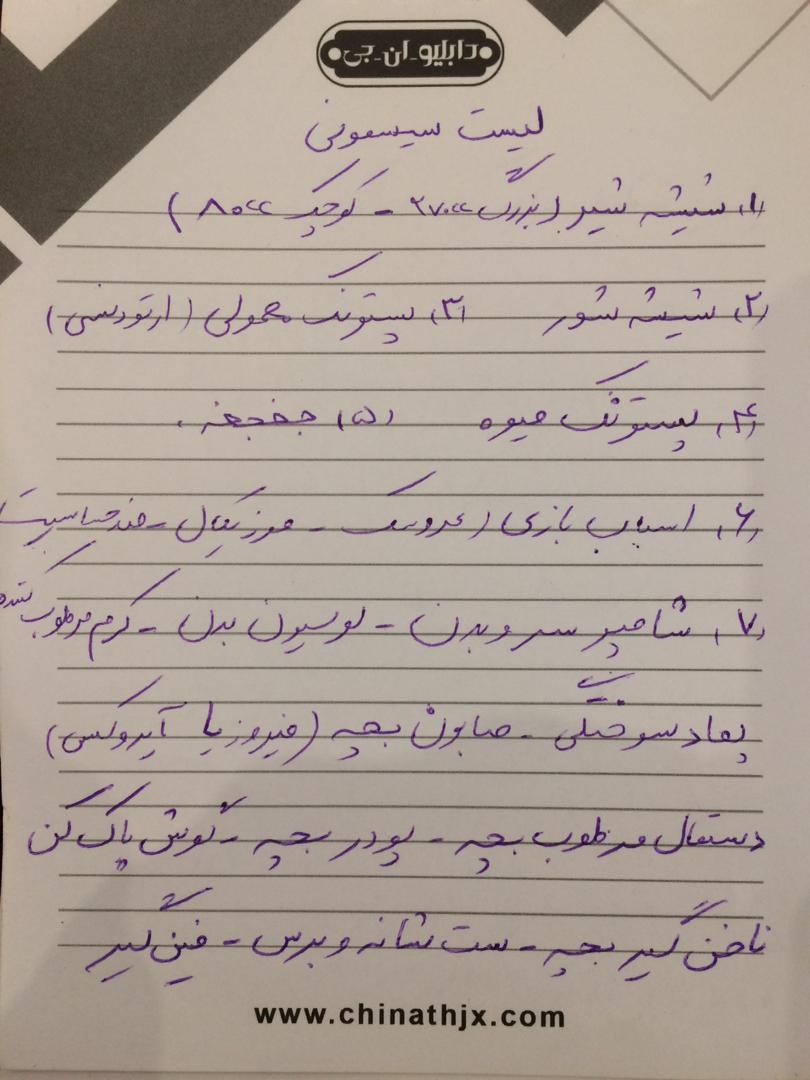 دابلیو-ان-جی
لیست سیسمونی
۱) شیشه شیر (بزرگ ۲۷۰cc - کوچک ۸۰cc)
۲) شیشه شور ۳) پستونک معمولی (ارتودنسی)
۴) پستونک میوه ۵) جغجغه.
۶) اسباب بازی (عروسک - موزیکال - ضد حساسیت
۷) شامپو سر و بدن - لوسیون بدن - کرم مرطوب کننده
پماد سوختگی - صابون بچه (فیروز یا آیروکس)
دستمال مرطوب بچه - پودر بچه - گوش پاک کن
ناخن گیر بچه - ست شانه و برس - فین گیر
www.chinathjx.com